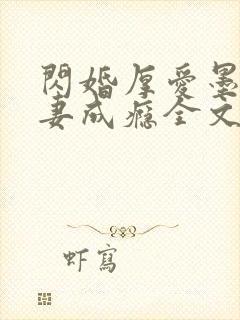 閃婚厚愛墨
妻成癮全文
虾寫